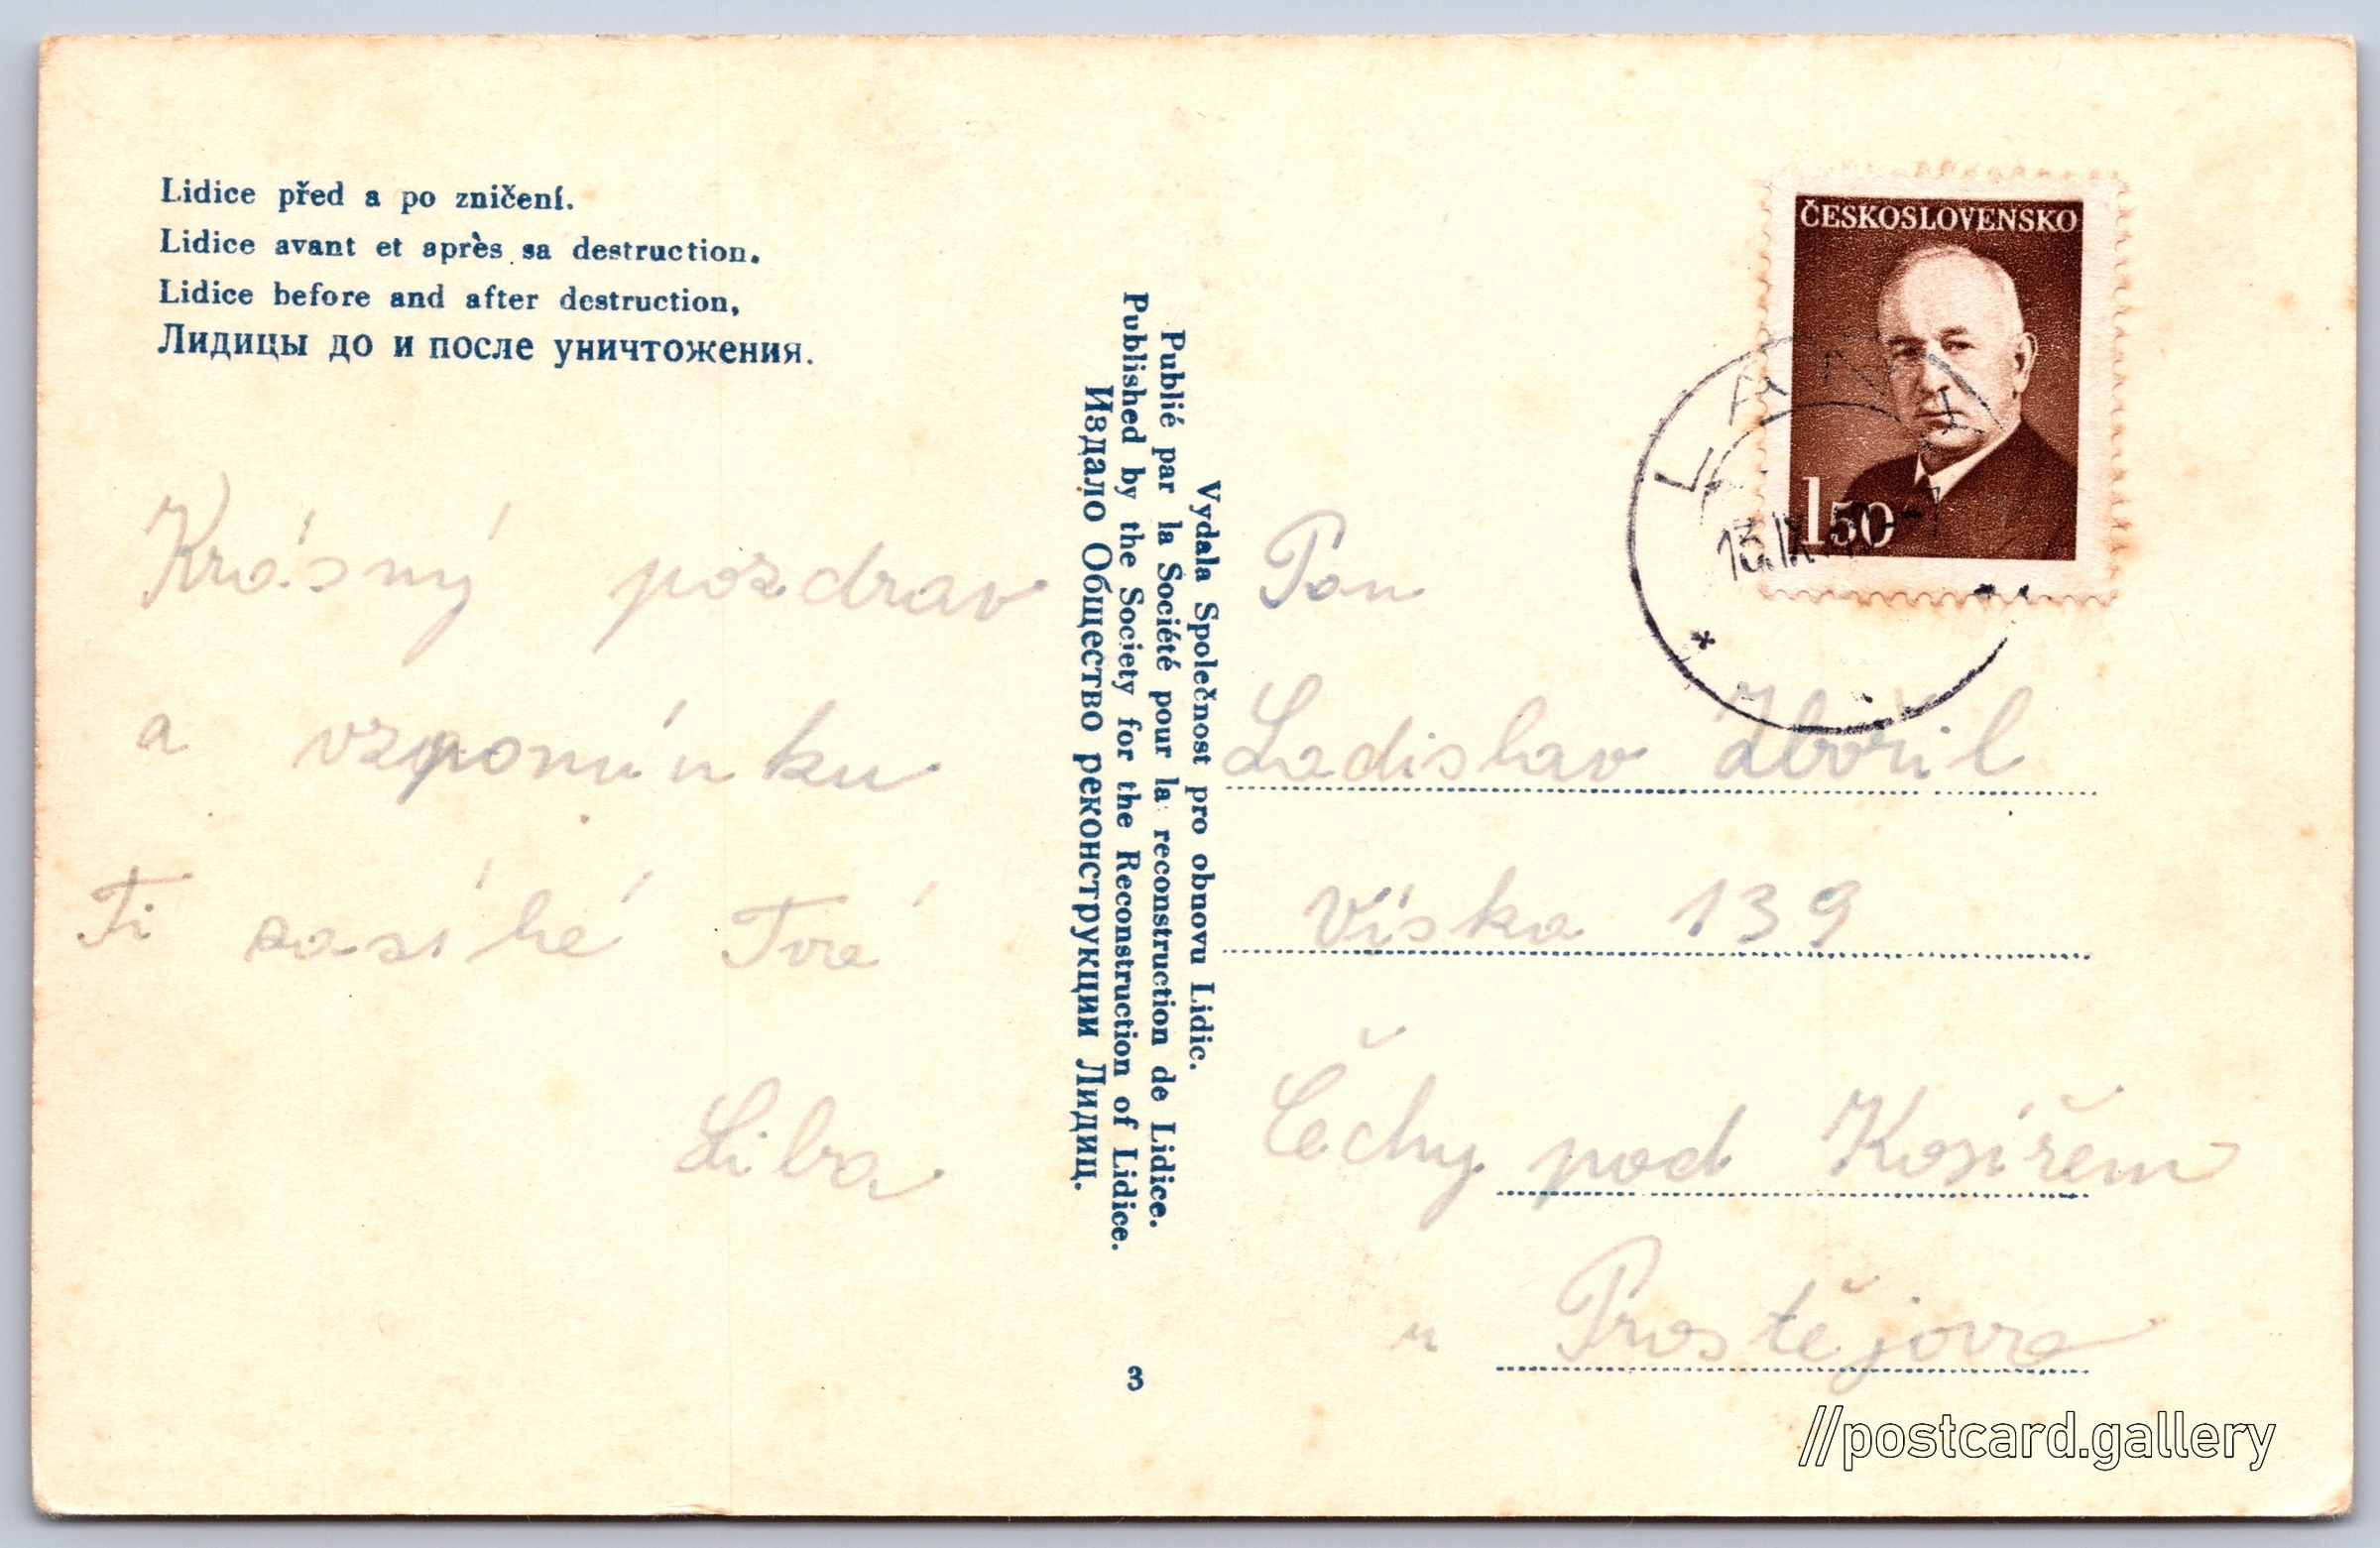 Lidice před a po zničení.
Lidice avant et après sa destruction.
Lidice before and after destruction,
Лидицы до и после уничтожения.
Krásný pozdrav
a vzpomínku
Ti zasílá Tvá
Liba
Vydala Společnost pro obnovu Lidic.
Publié par la Société pour la reconstruction de Lidice.
Published by the Society for the Reconstruction of Lidice.
Издало Общество реконструкции Лидиц.
3
ČESKOSLOVENSKO
150
LÁNY
13.IX.
Pan
Ladislav Zbořil
Víska 139
Čechy pod Kosířem
u Prostějova
//postcard.gallery